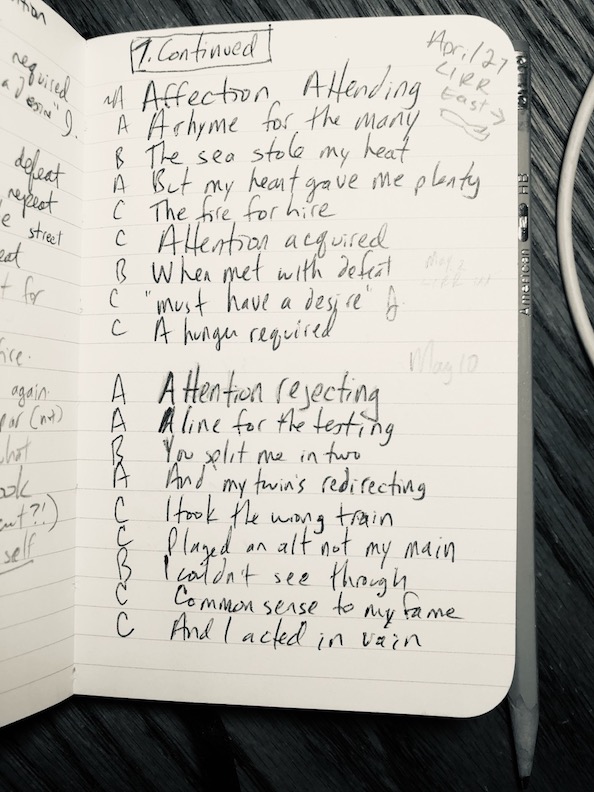 required
a desire").
defeat
repeat
e street
eat
t for
ire.
again.
par (not)
what
ook
out?!)
self
1. Continued
April 27
LIRR
East →
A Affection Attending
A A rhyme for the many
B The sea stole my heat
A But my heart gave me plenty
C The fire for hire
C Attention acquired
B When met with defeat
May 2
C "must have a desire"
C A hunger required
May 10
A Attention rejecting
A A line for the testing
B You split me in two
A And my twin's redirecting
C I took the wrong train
C Played an alt not my main
B I couldn't see through
C Common sense to my fame
C And I acted in vain
American HB